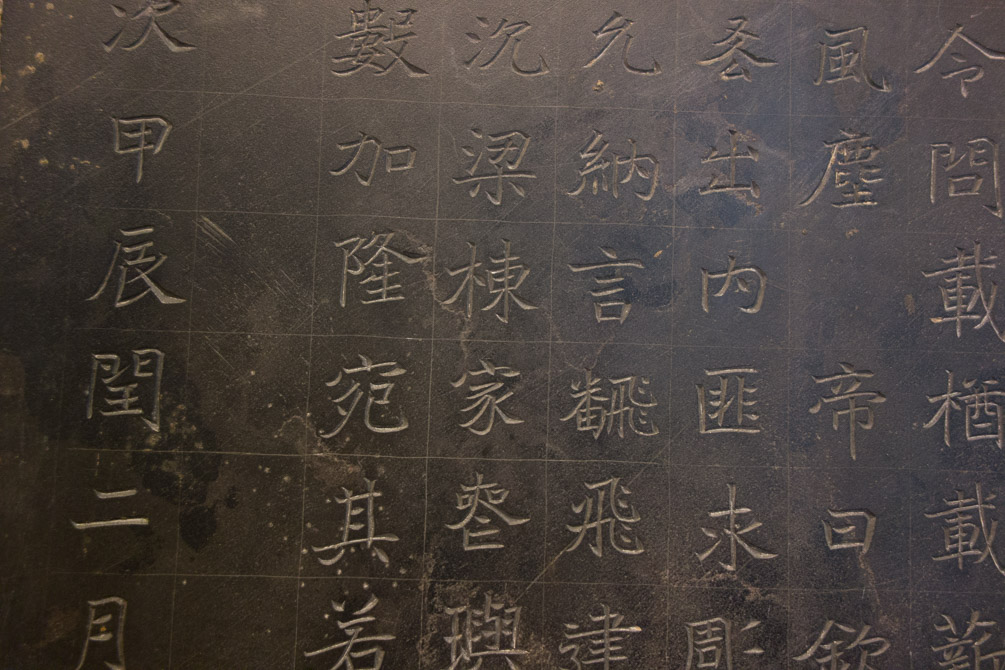 令問載槱載薪
風塵 帝曰欽
出内匪求彫
允納言翻飛建
沉梁棟家壑璵
數加隆宛其若
次甲辰閏二月